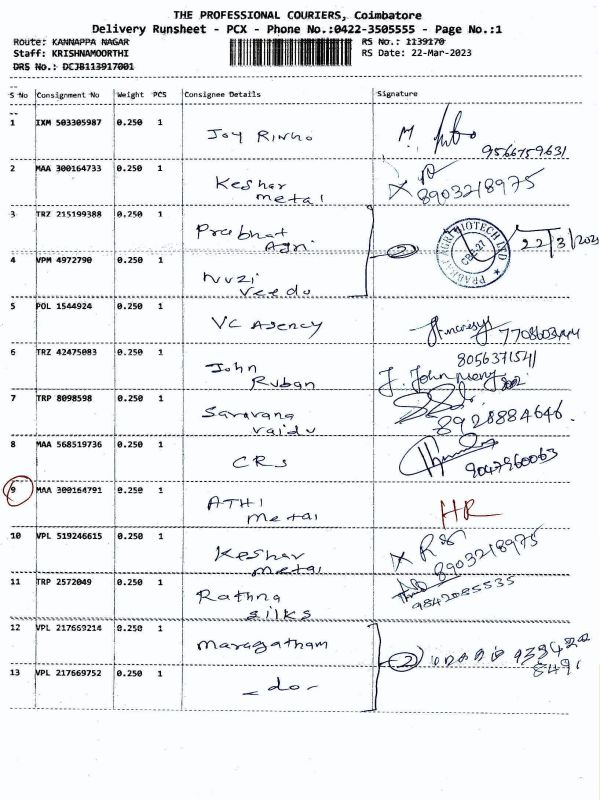 THE PROFESSIONAL COURIERS, Coimbatore
Delivery Runsheet - PCX - Phone No.:0422-3505555 - Page No.:1
Route: KANNAPPA NAGAR
Staff: KRISHNAMOORTHI
DRS No.: DCJB113917001
RS No.: 1139170
RS Date: 22-Mar-2023
S No Consignment No Weight PCS Consignee Details Signature
1 IXM 503305987 0.250 1 Joy Rinho 9566759631
2 MAA 300164733 0.250 1 Keshar metal 8903218975
3 TRZ 215199388 0.250 1 Prabhat Agri 2 22/3/2023
4 VPM 4972790 0.250 1 Nuzi Veedu
5 POL 1544924 0.250 1 VC Agency
6 TRZ 42475083 0.250 1 John Ruban 8056371541
7 TRP 8098598 0.250 1 Saravana vaidu 8928884646
8 MAA 568519736 0.250 1 CRS 9047960063
9 MAA 300164791 0.250 1 ATHI metal HR
10 VPL 519246615 0.250 1 Keshar metal 8903218975
11 TRP 2572049 0.250 1 Rathna silks 9842085535
12 VPL 217669214 0.250 1 maragatham 2
13 VPL 217669752 0.250 1 - do -